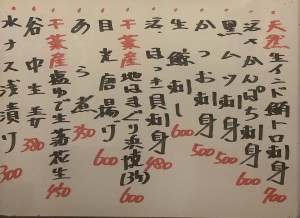 ・天然生インド鮪トロ刺身 700
・活〆かんぱち刺身 600
・黒ムツ刺身 500
・かつお刺身 500
・生鯨刺し 600
・活ほっき貝刺身 480
・千葉産地はまぐり浜焼(3ケ) 600
・目光唐揚 600
・あら煮 350
・千葉産塩ゆで生落花生 450
・谷中生姜 380
・水ナス浅漬り 300